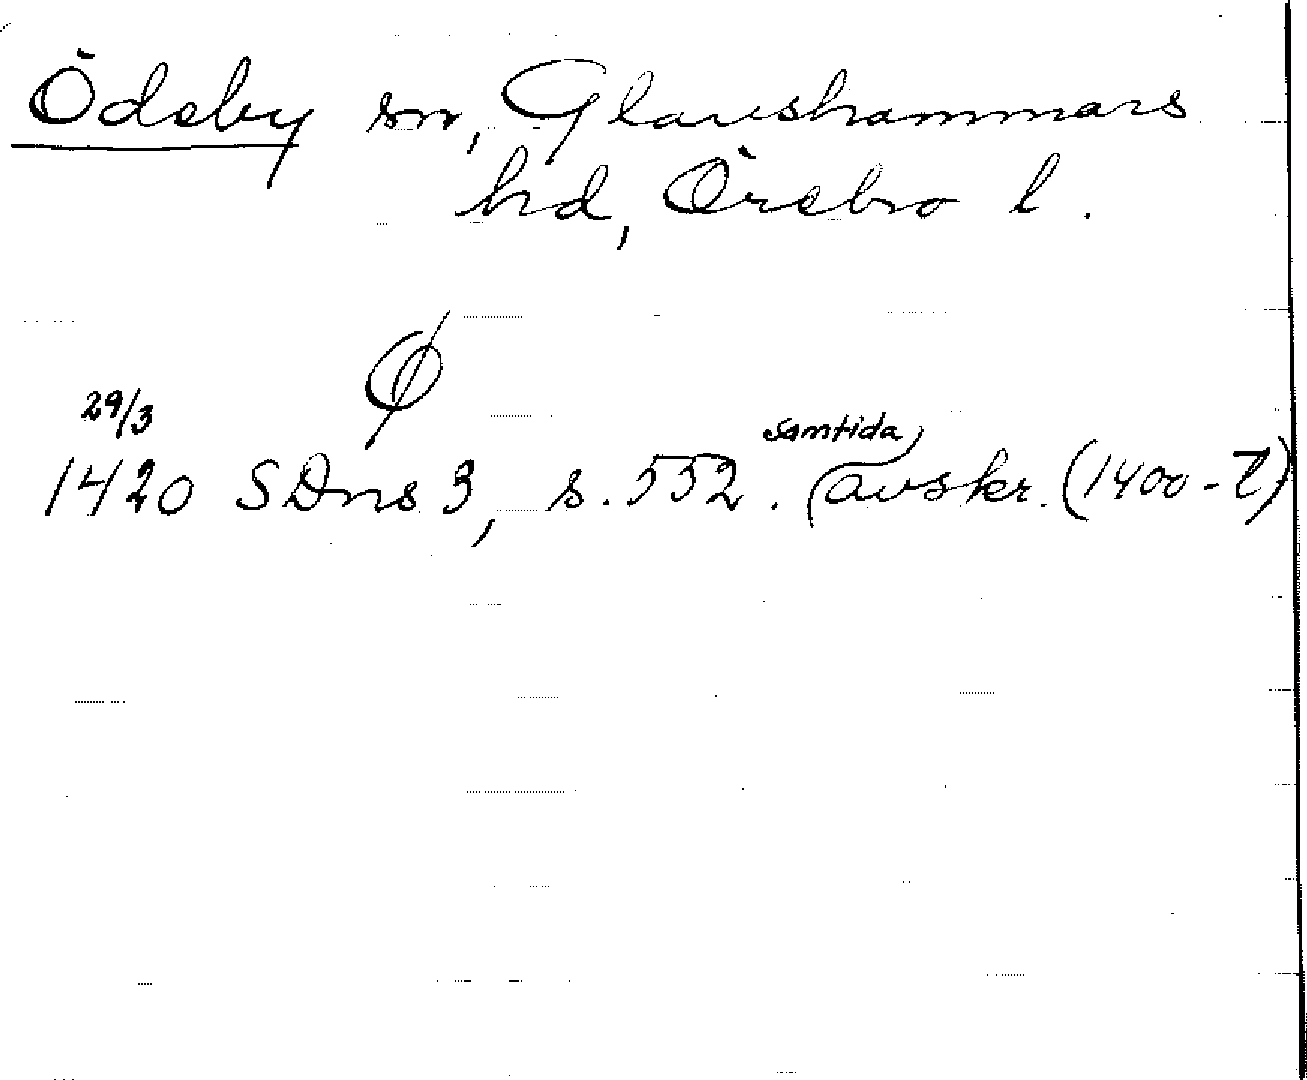 Ödeby sn, Glanshammars
hd, Örebro l.
Ø
29/3
samtida
1420 SDns 3, s. 552. (avskr. (1400-t)